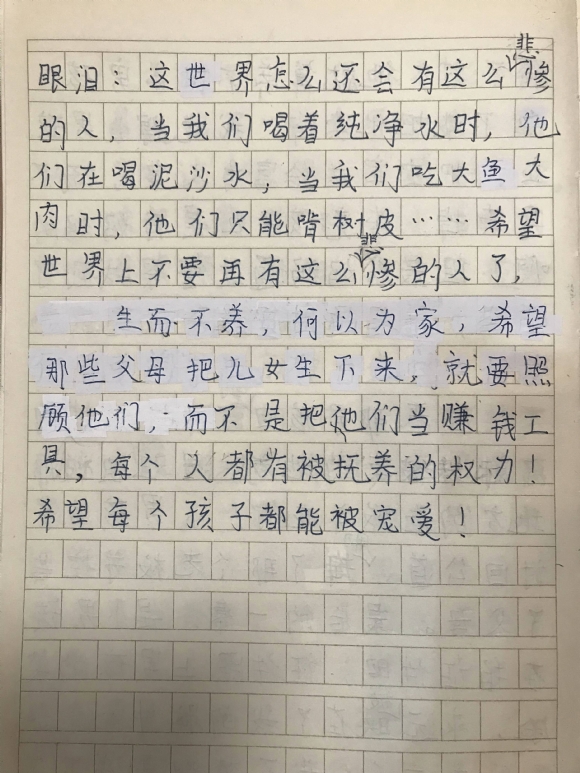 眼泪：这世界怎么还会有这么悲惨
的人，当我们喝着纯净水时，他
们在喝泥沙水，当我们吃大鱼大
肉时，他们只能啃树皮……希望
世界上不要再有这么悲惨的人了，
生而不养，何以为家，希望
那些父母把儿女生下来，就要照
顾他们，而不是把他们当赚钱工
具，每个人都有被抚养的权力！
希望每个孩子都能被宠爱！